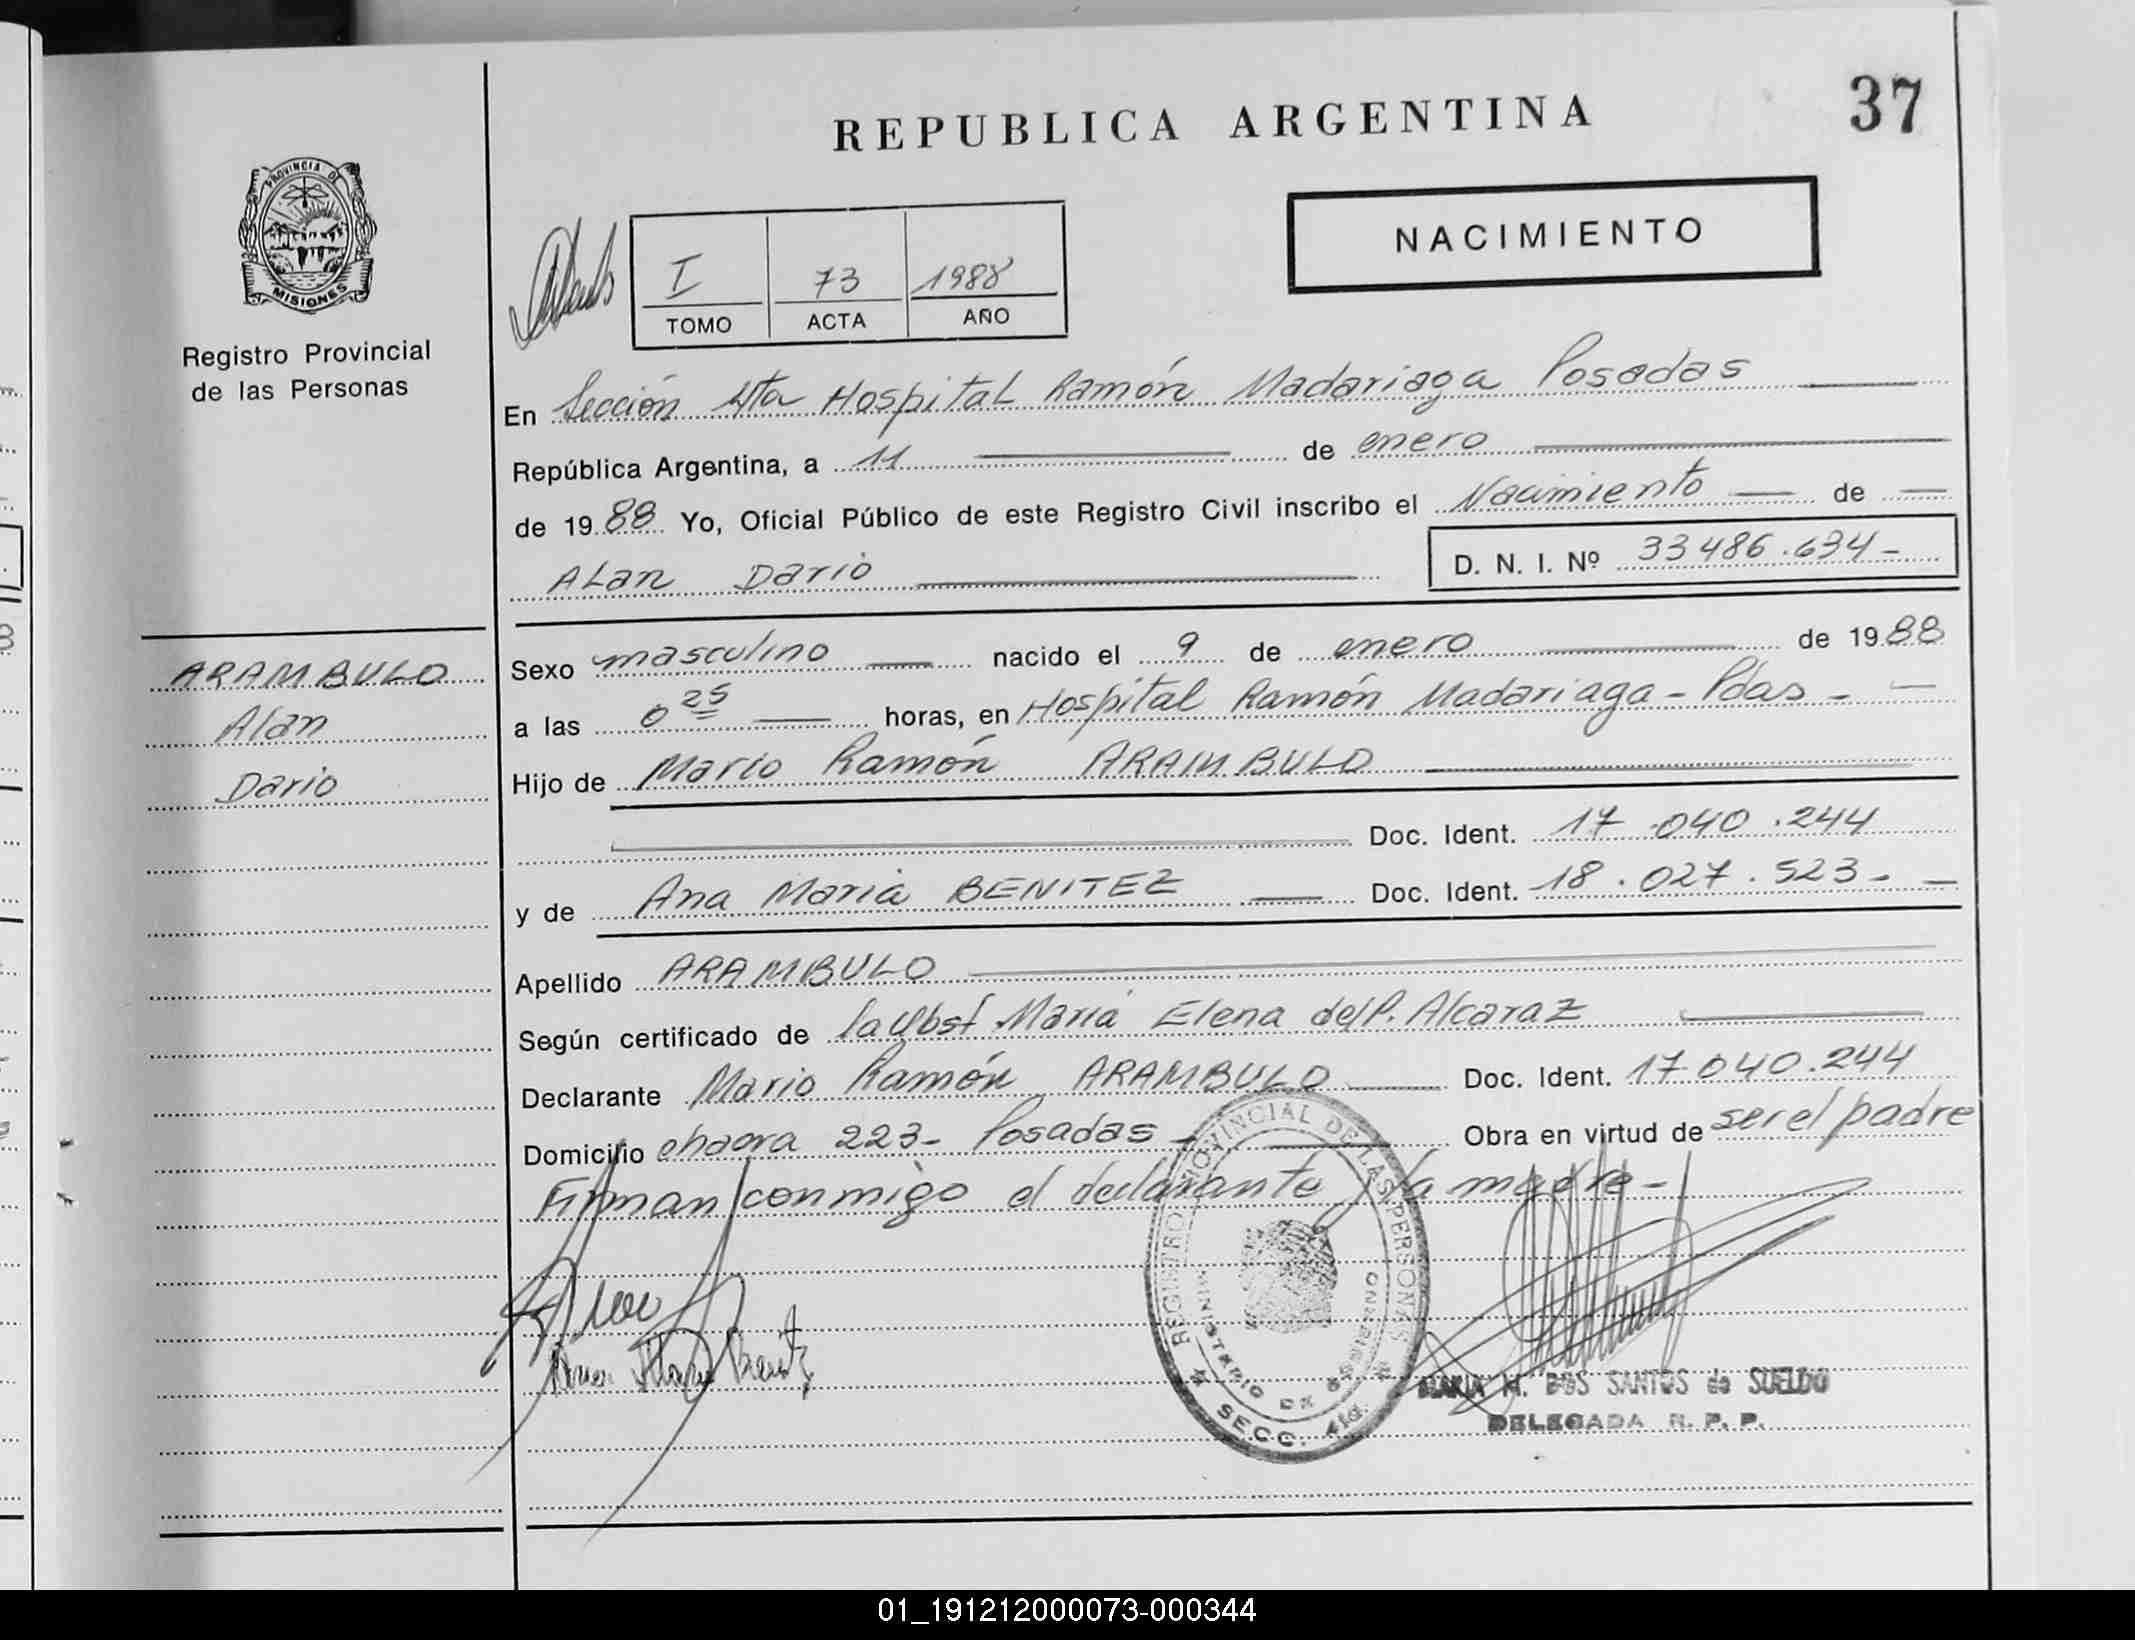 37
REPUBLICA ARGENTINA
PROVINCIA DE
MISIONES
NACIMIENTO
I 73 1988
TOMO ACTA AÑO
Registro Provincial
de las Personas
En Sección 4ta Hospital Ramón Madariaga Posadas
República Argentina, a 11 de enero
de 1988 Yo, Oficial Público de este Registro Civil inscribo el Nacimiento de
Alan Dario D. N. I. Nº 33486.634-
ARAMBULO
Alan
Dario
Sexo masculino nacido el 9 de enero de 1988
a las 0 25 horas, en Hospital Ramón Madariaga - Pdas -
Hijo de Mario Ramón ARAMBULO
Doc. Ident. 17.040.244
y de Ana Maria BENITEZ Doc. Ident. 18.027.523-
Apellido ARAMBULO
Según certificado de la Obst Maria Elena del P. Alcaraz
Declarante Mario Ramón ARAMBULO Doc. Ident. 17.040.244
Domicilio chacra 223- Posadas - Obra en virtud de ser el padre
Firman conmigo el declarante y la madre-
Ana Maria Benitez
REGISTRO PROVINCIAL DE LAS PERSONAS
MINISTERIO DE GOBIERNO
SECC. 4ta.
MARIA M. DOS SANTOS de SUELDO
DELEGADA R. P. P.
01_191212000073-000344